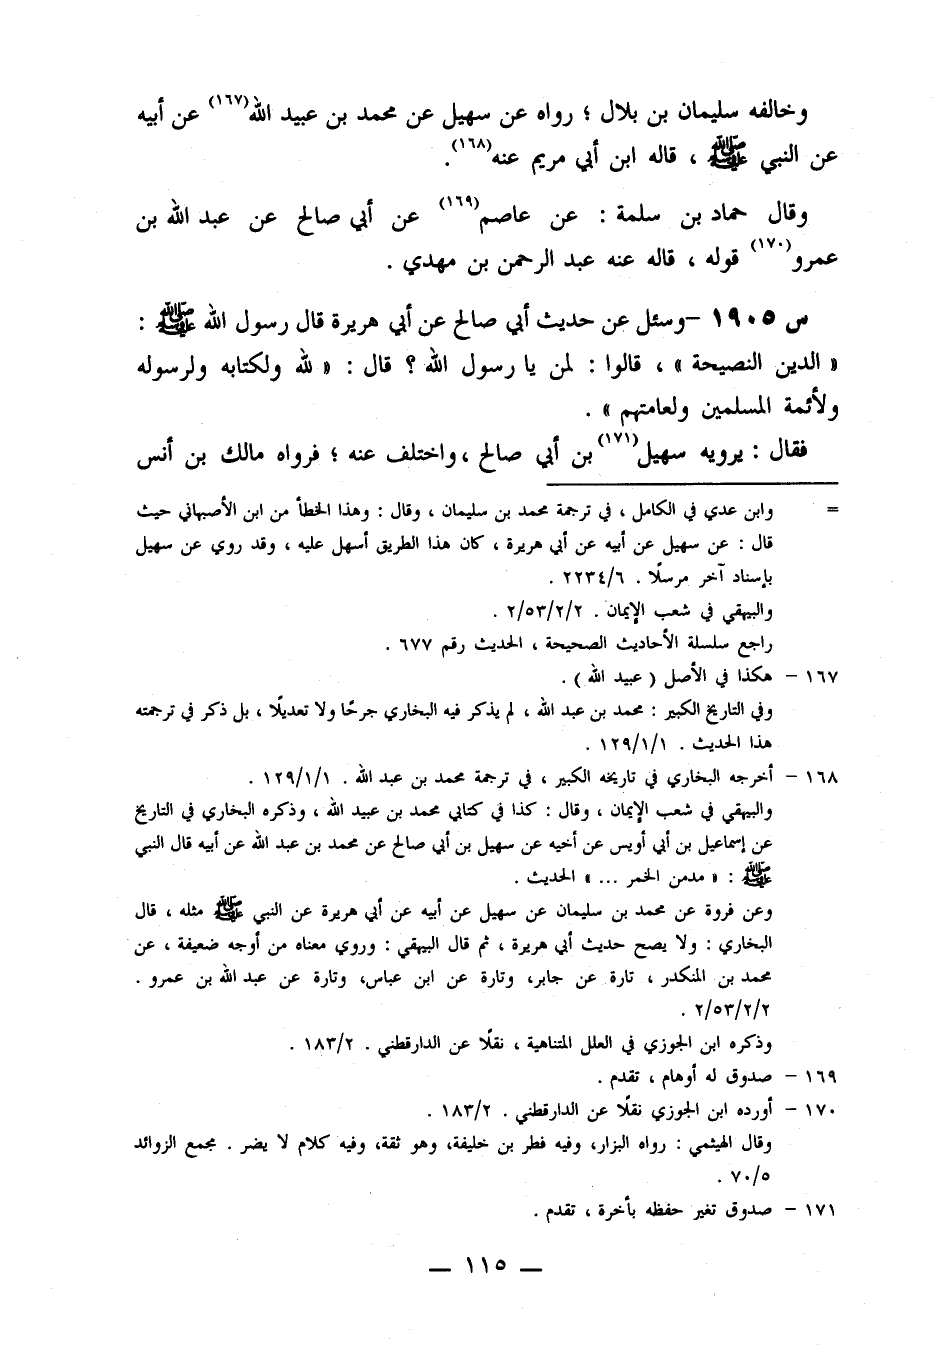 وخالفه سليمان بن بلال ؛ رواه عن سهيل عن محمد بن عبيد الله(١٦٧) عن أبيه
عن النبي ﷺ ، قاله ابن أبي مريم عنه(١٦٨).
وقال حماد بن سلمة : عن عاصم(١٦٩) عن أبي صالح عن عبد الله بن
عمرو(١٧٠) قوله ، قاله عنه عبد الرحمن بن مهدي .
س ١٩٠٥ –وسئل عن حديث أبي صالح عن أبي هريرة قال رسول الله ﷺ :
« الدين النصيحة » ، قالوا : لمن يا رسول الله ؟ قال : « لله ولكتابه ولرسوله
ولأئمة المسلمين ولعامتهم » .
فقال : يرويه سهيل(١٧١) بن أبي صالح ، واختلف عنه ؛ فرواه مالك بن أنس
= وابن عدي في الكامل ، في ترجمة محمد بن سليمان ، وقال : وهذا الخطأ من ابن الأصبهاني حيث
قال : عن سهيل عن أبيه عن أبي هريرة ، كان هذا الطريق أسهل عليه ، وقد روي عن سهيل
بإسناد آخر مرسلًا . ٢٢٣٤/٦ .
والبيهقي في شعب الإيمان . ٢/٥٣/٢/٢ .
راجع سلسلة الأحاديث الصحيحة ، الحديث رقم ٦٧٧ .
١٦٧ – هكذا في الأصل ( عبيد الله ) .
وفي التاريخ الكبير : محمد بن عبد الله ، لم يذكر فيه البخاري جرحًا ولا تعديلًا ، بل ذكر في ترجمته
هذا الحديث . ١٢٩/١/١ .
١٦٨ – أخرجه البخاري في تاريخه الكبير ، في ترجمة محمد بن عبد الله . ١٢٩/١/١ .
والبيهقي في شعب الإيمان ، وقال : كذا في كتابي محمد بن عبيد الله ، وذكره البخاري في التاريخ
عن إسماعيل بن أبي أويس عن أخيه عن سهيل بن أبي صالح عن محمد بن عبد الله عن أبيه قال النبي
ﷺ : « مدمن الخمر ... » الحديث .
وعن فروة عن محمد بن سليمان عن سهيل عن أبيه عن أبي هريرة عن النبي ﷺ مثله ، قال
البخاري : ولا يصح حديث أبي هريرة ، ثم قال البيهقي : وروي معناه من أوجه ضعيفة ، عن
محمد بن المنكدر ، تارة عن جابر، وتارة عن ابن عباس، وتارة عن عبد الله بن عمرو .
٢/٥٣/٢/٢ .
وذكره ابن الجوزي في العلل المتناهية ، نقلًا عن الدارقطني . ١٨٣/٢ .
١٦٩ – صدوق له أوهام ، تقدم .
١٧٠ – أورده ابن الجوزي نقلًا عن الدارقطني . ١٨٣/٢ .
وقال الهيثمي : رواه البزار، وفيه فطر بن خليفة، وهو ثقة، وفيه كلام لا يضر . مجمع الزوائد
٧٠/٥ .
١٧١ – صدوق تغير حفظه بأخرة ، تقدم .
— ١١٥ —